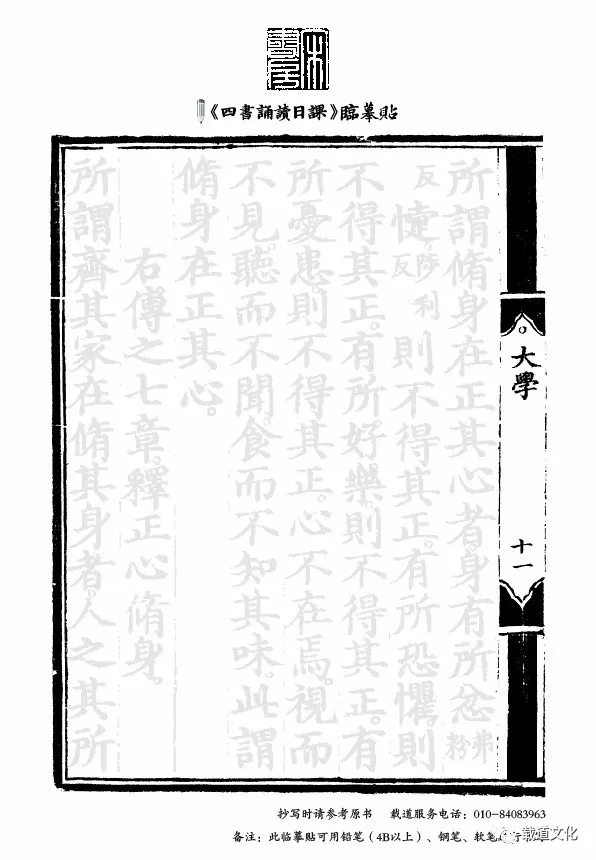 《四書誦讀日課》臨摹貼
大學
十一
所謂脩身在正其心者。身有所忿弗粉
反懥。陟利反則不得其正。有所恐懼。則
不得其正。有所好樂。則不得其正。有
所憂患。則不得其正。心不在焉。視而
不見。聽而不聞。食而不知其味。此謂
脩身在正其心。
右傳之七章。釋正心脩身。
所謂齊其家在脩其身者。人之其所
抄写时请参考原书 载道服务电话：010-84083963
备注：此临摹贴可用铅笔（4B以上）、钢笔、软笔
载道文化